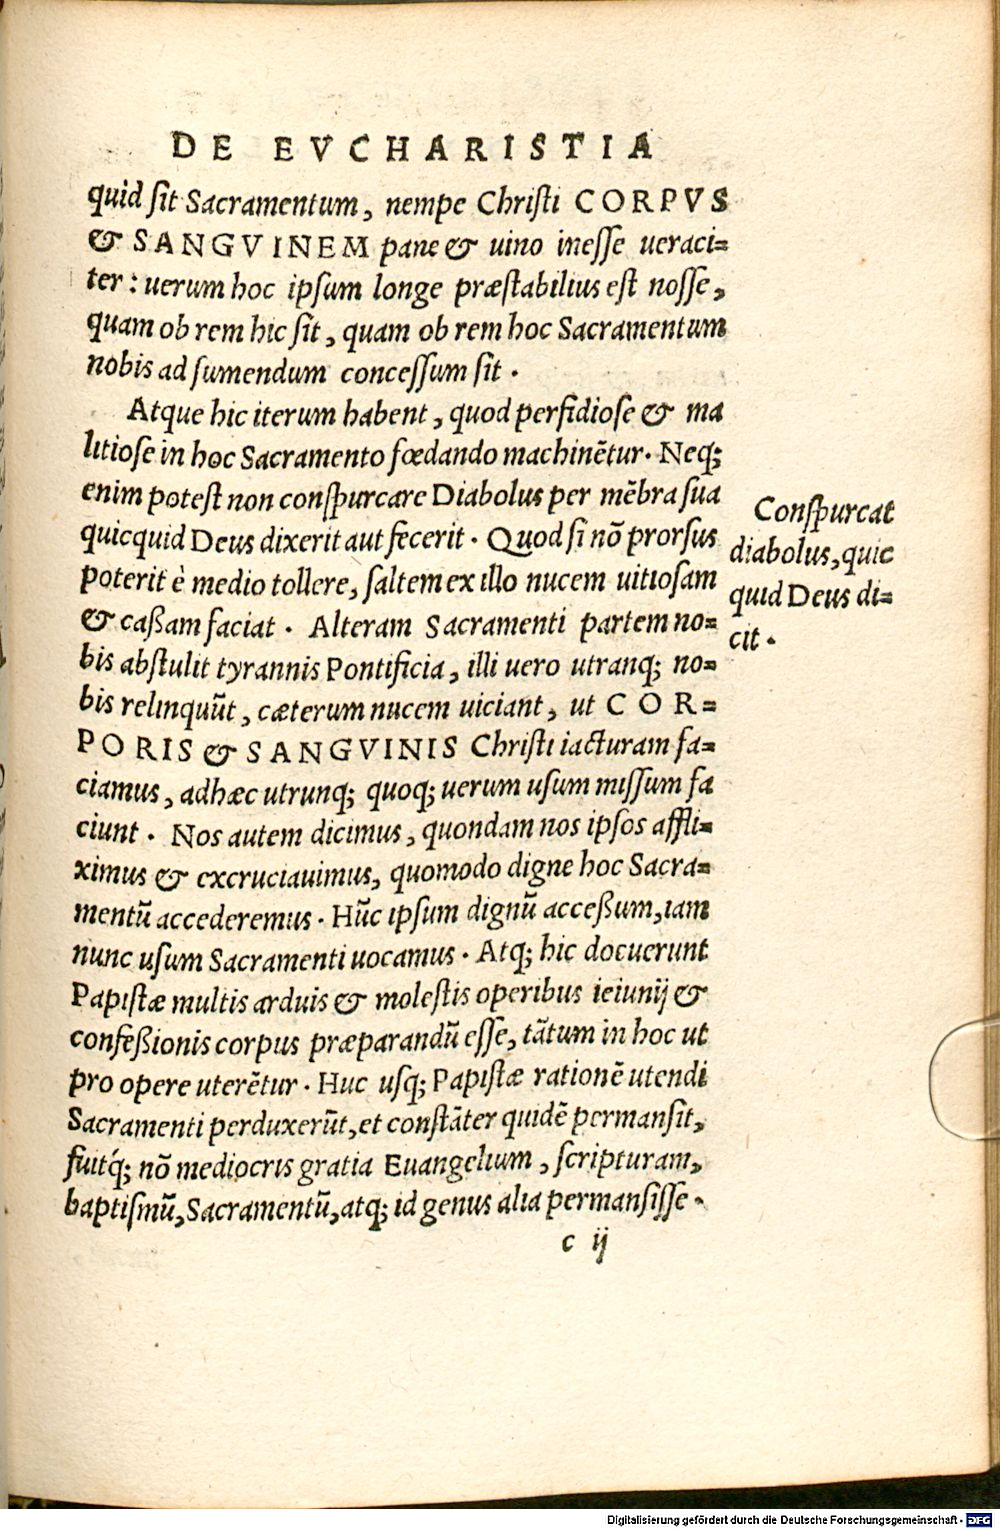 DE EVCHARISTIA
quid ſit Sacramentum, nempe Chriſti CORPVS
& SANGVINEM pane & uino ineſſe ueraci=
ter: uerum hoc ipſum longe præſtabilius eſt noſſe,
quam ob rem hic ſit, quam ob rem hoc Sacramentum
nobis ad ſumendum conceſſum ſit.
Atque hic iterum habent, quod perfidioſe & ma
litioſe in hoc Sacramento fœdando machinẽtur. Neq;
enim poteſt non conſpurcare Diabolus per mẽbra ſua
quicquid Deus dixerit aut fecerit. Quod ſi nõ prorſus
poterit è medio tollere, ſaltem ex illo nucem uitioſam
& caßam faciat. Alteram Sacramenti partem no=
bis abſtulit tyrannis Pontificia, illi uero utranq; no=
bis relinquũt, cæterum nucem uiciant, ut COR=
PORIS & SANGVINIS Chriſti iacturam fa=
ciamus, adhæc utrunq; quoq; uerum uſum miſſum fa
ciunt. Nos autem dicimus, quondam nos ipſos affli=
ximus & excruciauimus, quomodo digne hoc Sacra=
mentũ accederemus. Hũc ipſum dignũ acceßum, iam
nunc uſum Sacramenti uocamus. Atq; hic docuerunt
Papiſtæ multis arduis & moleſtis operibus ieiunij &
confeßionis corpus præparandũ eſſe, tãtum in hoc ut
pro opere uterẽtur. Huc uſq; Papiſtæ rationẽ utendi
Sacramenti perduxerũt, et conſtãter quidẽ permanſit,
fuitq́; nõ mediocris gratia Euangelium, ſcripturam,
baptiſmũ, Sacramentũ, atq; id genus alia permanſiſſe.
c ij
Conſpurcat
diabolus, quic
quid Deus di=
cit.
Digitalisierung gefördert durch die Deutsche Forschungsgemeinschaft - DFG